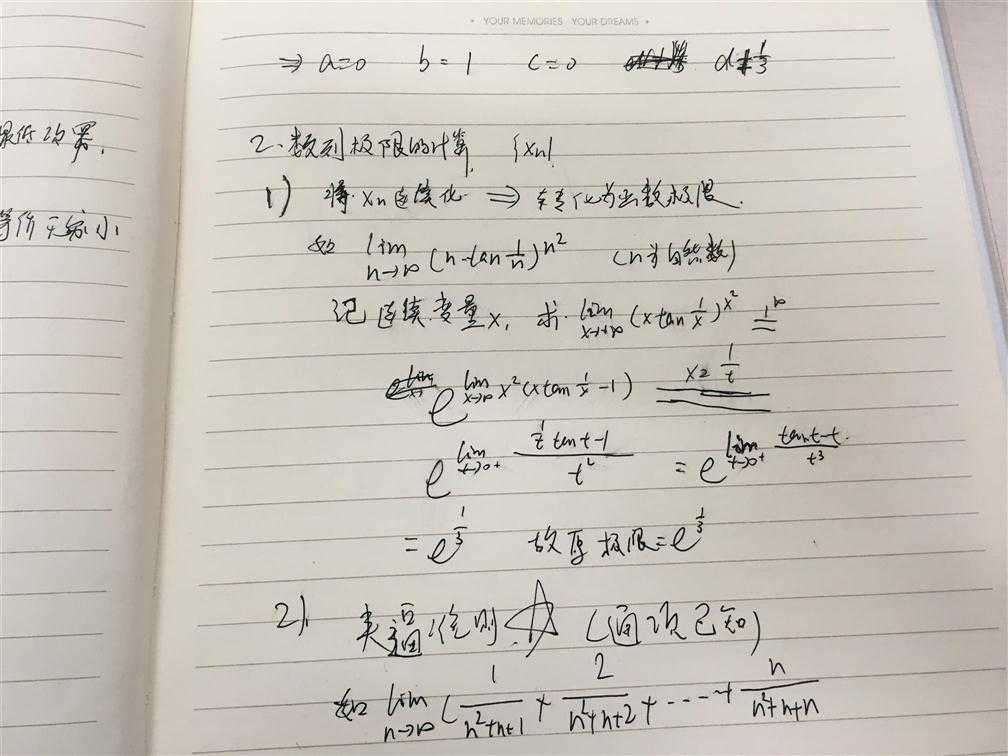 • YOUR MEMORIES YOUR DREAMS •
⇒ a=0 b=1 c=0 d=1/3
最低次幂,
等价无穷小
2. 数列极限的计算 {xn}
1) 将 xn 连续化 ⇒ 转化为函数极限.
如 lim n→∞ (n tan 1/n)^n² (n为自然数)
记连续变量x, 求 lim x→+∞ (x tan 1/x)^x² = 1^∞
e^lim x→∞ x²(x tan 1/x -1) x=1/t
e^lim t→0+ (1/t tant-1)/t² = e^lim t→0+ (tant-t)/t³
= e^1/3 故原极限=e^1/3
2). 夹逼准则 ☆ (通项已知)
如 lim n→∞ (1/(n²+n+1) + 2/(n²+n+2) + ----+ n/(n²+n+n)